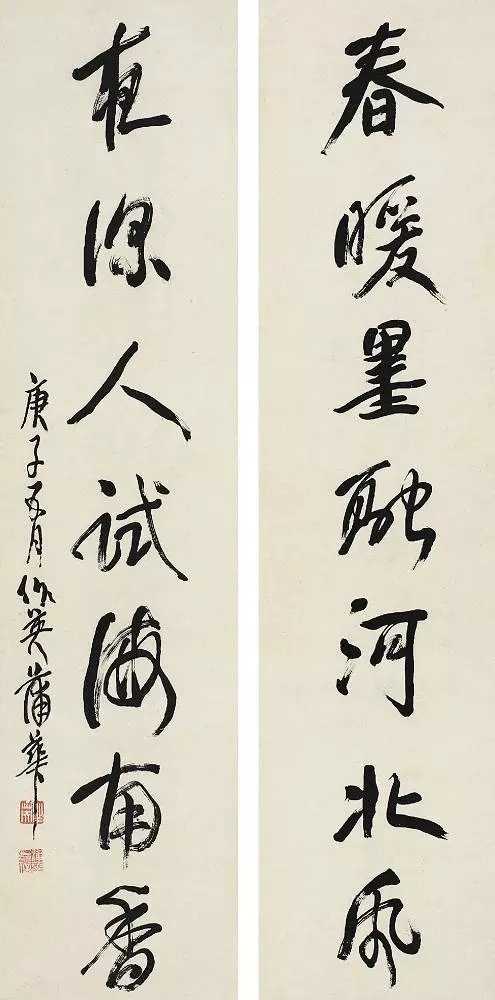 春暖墨融河北風
夜深人試海南香
庚子五月作英蒲華